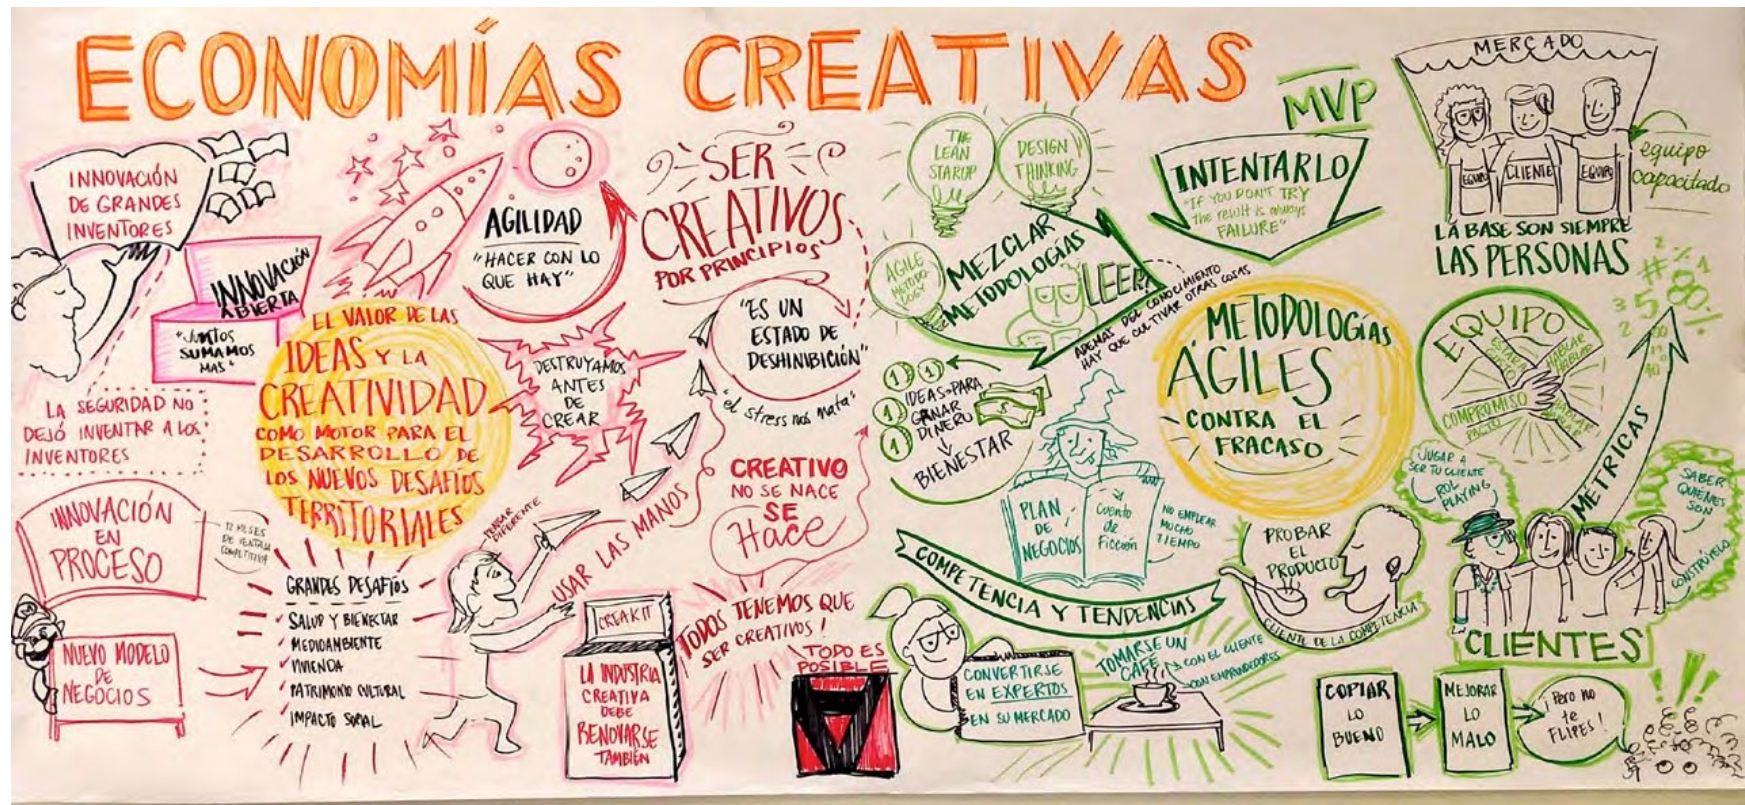 ECONOMÍAS CREATIVAS
INNOVACIÓN
DE GRANDES
INVENTORES
INNOVACIÓN
ABIERTA
"Juntos
SUMAMOS
MAS"
LA SEGURIDAD NO
DEJÓ INVENTAR A LOS
INVENTORES
INNOVACIÓN
EN
PROCESO
12 MESES
DE VENTAJA
COMPETITIVA
NUEVO MODELO
DE
NEGOCIOS
EL VALOR DE LAS
IDEAS Y LA
CREATIVIDAD
COMO MOTOR PARA EL
DESARROLLO DE
LOS NUEVOS DESAFÍOS
TERRITORIALES
GRANDES DESAFÍOS
SALUD Y BIENESTAR
MEDIOAMBIENTE
VIVIENDA
PATRIMONIO CULTURAL
IMPACTO SOCIAL
AGILIDAD
"HACER CON LO
QUE HAY"
DESTRUYAMOS
ANTES
DE
CREAR
SER
CREATIVOS
POR PRINCIPIOS
"ES UN
ESTADO DE
DESHINIBICIÓN"
"el stress nos mata"
PENSAR
DIFERENTE
USAR LAS MANOS
CREATIVO
NO SE NACE
SE
Hace
CREAKIT
LA INDUSTRIA
CREATIVA
DEBE
RENOVARSE
TAMBIÉN
TODOS TENEMOS QUE
SER CREATIVOS!
TODO ES
POSIBLE
THE
LEAN
STARUP
DESIGN
THINKING
AGILE
METODO-
LOGY
MEZCLAR
METODOLOGÍAS
LEER!
ADEMAS DEL CONOCIMIENTO
HAY QUE CULTIVAR OTRAS COSAS
1 1
1
1
5
IDEAS PARA
GANAR
DINERO
BIENESTAR
PLAN
DE
NEGOCIOS
Cuento
de
Ficción
NO EMPLEAR
MUCHO
TIEMPO
COMPETENCIA Y TENDENCIAS
CONVERTIRSE
EN EXPERTOS
EN SU MERCADO
TOMARSE UN
CAFE
CON EL CLIENTE
CON EMPRENDEDORES
MVP
INTENTARLO
"IF YOU DON'T TRY
the result is always
FAILURE"
METODOLOGÍAS
ÁGILES
CONTRA EL
FRACASO
PROBAR
EL
PRODUCTO
CLIENTE DE LA COMPETENCIA
MERCADO
EQUIPO
CLIENTE
EQUIPO
equipo
capacitado
LA BASE SON SIEMPRE
LAS PERSONAS
EQUIPO
HABLAR
HABLAR
COMPROMISO
PACTO
MÉTRICAS
JUGAR A
SER TU CLIENTE
ROL
PLAYING
SABER
QUIENES
SON
CONSTRÚYELO
CLIENTES
COPIAR
LO
BUENO
MEJORAR
LO
MALO
¡Pero no
te
FLIPES!